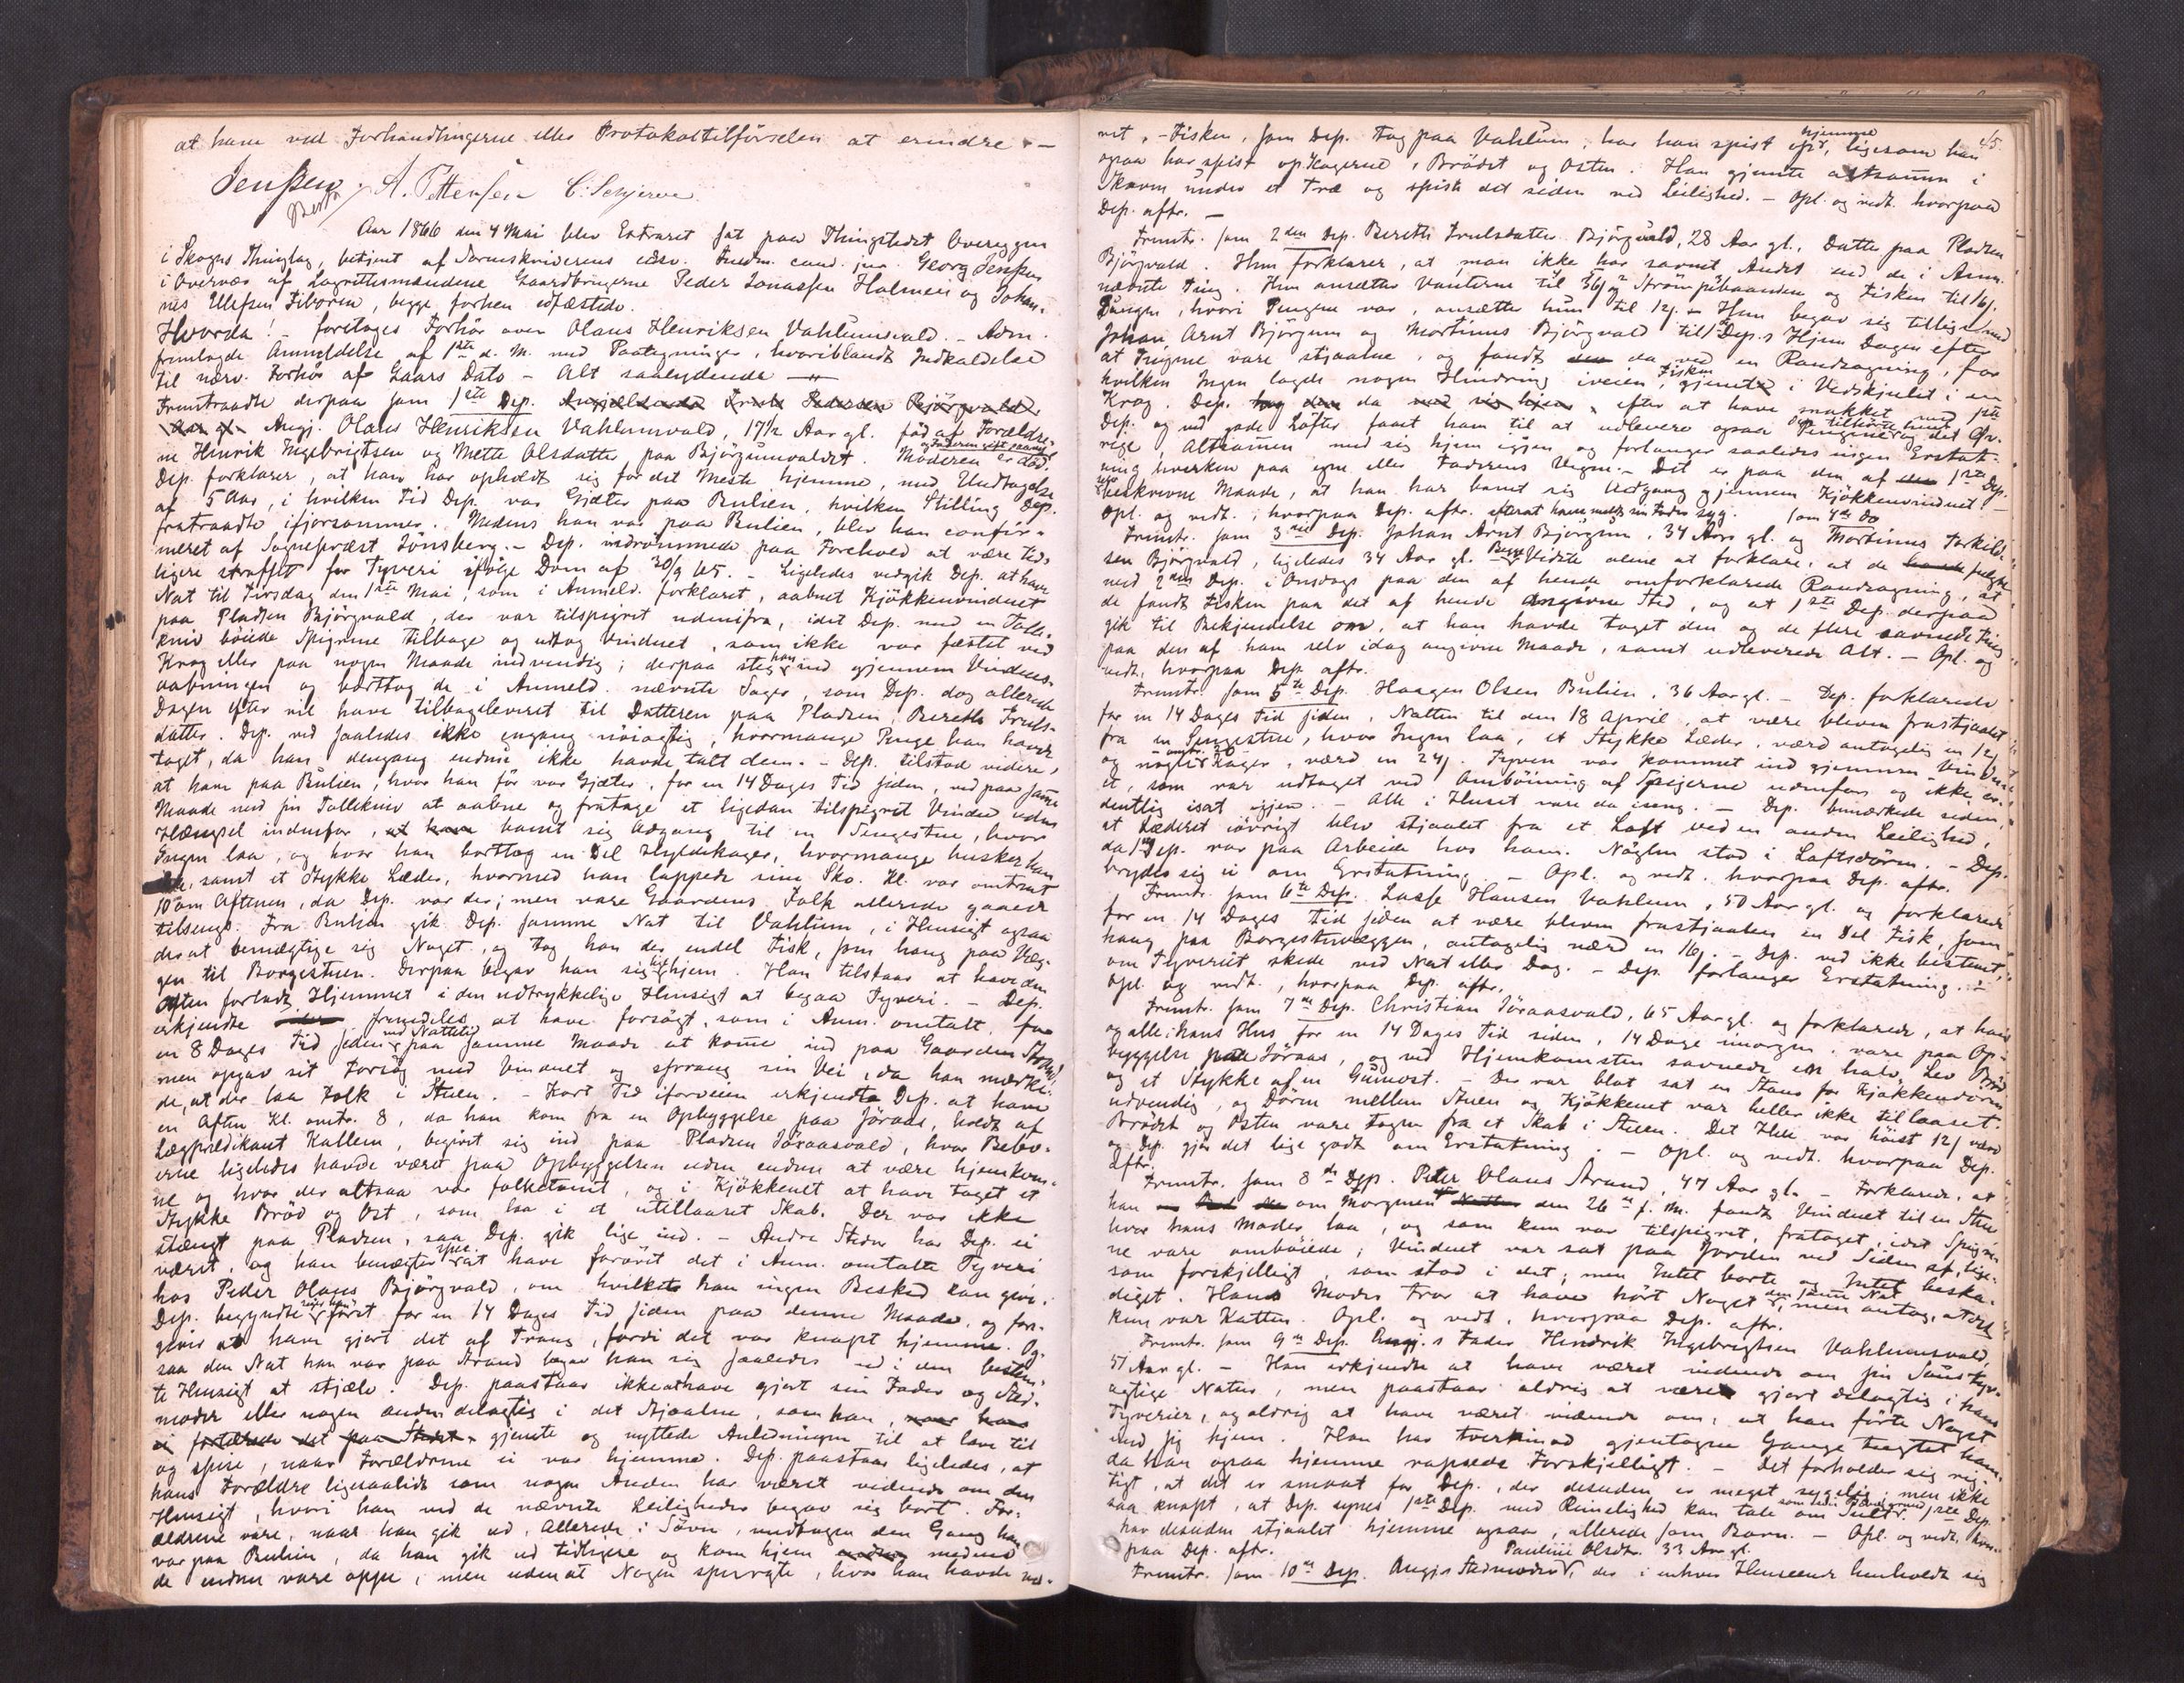 at have ved Forhandlingerne eller Protokoltilførselen at erindre. —
Jenssen A. Pettersen C. Schjerve
Aar 1866 den 4 Mai blev Extraret sat paa Thingstedet Overeggen
i Skogns Thinglag, betjent af Sorenskriverens edsv. Fuldm. cand. jur. Georg Jenssen
i Overvær af Lagrettesmændene Gaardbrugerne Peder Jonassen Holmen og Johan-
nes Ellefsen Fiboren, begge forhen edfæstede.
Hvorda! — foretoges Forhør over Olaus Henriksen Vahlumsvald. — Adm.
fremlagde Anmeldelse af 1ste d. M. med Paategninger, hvoriblandt Indkaldelse
til nærv. Forhør af Gaars Dato — Alt saalydende —
Fremtraadte derpaa som 1ste Dep.
Angj. Olaus Henriksen Vahlumsvald, 17½ Aar gl. født af Forældre-
ne Henrik Ingebrigtsen og Mette Olsdatter paa Bjørgumsvaldet. Moderen er død og Faderen gift paany
Dep. forklarer, at han har opholdt sig for det Meste hjemme, med Undtagelse
af 5 Aar, i hvilken Tid Dep. var Gjæter paa Bulien, hvilken Stilling Dep.
fratraadte ifjorsommer. Medens han var paa Bulien, blev han confir-
meret af Sognepræst Jönsberg. — Dep. indrømmede paa Forehold at være tid-
ligere straffet for Tyveri ifølge Dom af 20/9 65. — Ligeledes vedgik Dep. at have
Nat til Tirsdag den 1ste Mai, som i Anmeld. forklaret, aabnet Kjøkkenvinduet
paa Pladsen Bjørgvald, der var tilspigret udenifra, idet Dep. med en Tolle-
kniv bøiede Spigrene tilbage og udtog Vinduet, som ikke var fæstet ved
Krog eller paa nogen Maade indvendig; derpaa steg han ind gjennem Vindues-
aabningen og borttog de i Anmeld. nævnte Sager, som Dep. dog allerede
Dagen efter vil have tilbageleveret til Datteren paa Pladsen, Bereth Truls-
datter. Dep. ved saaledes ikke engang nøiagtig, hvormange Penge han havde
taget, da han dengang endnu ikke havde talt dem. — Dep. tilstod videre,
at han paa Bulien, hvor han før var Gjæter, for en 14 Dages Tid siden, ved paa samme
Maade med sin Tollekniv at aabne og fratage et ligedan tilspigret Vindue uden
Hængsel indenfor, banet sig Adgang til en Sengestue, hvor
Ingen laa, og hvor han borttog en Del Hyldekager, hvormange husker han
ikke, samt et Stykke Læder, hvormed han lappede sine Sko. Kl. var omtrent
10 om Aftenen, da Dep. var der; men vare Gaardens Folk allerede gaaede
tilsengs. Fra Bulien gik Dep. samme Nat til Vahlum, i Hensigt ogsaa
der at bemægtige sig Noget, og tog han der endel Fisk, som hang paa Væg-
gen til Borgestuen. Derpaa begav han sig hjem. Han tilstaar at have den
Aften forladt Hjemmet i den udtrykkelige Hensigt at begaa Tyveri. — Dep.
erkjendte fremdeles at have forsøgt, som i Anm. omtalt, for
en 8 Dages Tid siden ved Nattetid paa samme Maade at komme ind paa Gaarden Strand,
men opgav sit Forsøg med Vinduet og sprang sin Vei, da han mærke-
de, at der laa Folk i Stuen. — Kort Tid iforveien erkjendte Dep. at have
en Aften Kl. omtr. 8, da han kom fra en Opbyggelse paa Jöraas, holdt af
Lægprædikant Kallem, begivet sig ind paa Pladsen Jöraasvald, hvor Bebo-
erne ligeledes havde været paa Opbyggelsen uden endnu at være hjemkom-
ne og hvor der altsaa var folketomt, og i Kjøkkenet at have taget et
Stykke Brød og Ost, som laa i et utillaaset Skab. Der var ikke
stængt paa Pladsen, saa Dep. gik lige ind. — Andre Steder har Dep. ei
været, og han benægter at have forøvet det i Anm. omtalte Tyveri
hos Peder Olaus Bjørgvald, om hvilket han ingen Besked kan give.
Dep. begyndte først for en 14 Dages Tid siden paa denne Maade, og for-
giver at have gjort det af Trang, fordi det var knapt hjemme. Og-
saa den Nat han var paa Strand begav han sig saaledes ud i den bestem-
te Hensigt at stjæle. Dep. paastaar ikke at have gjort sin Fader og Sted-
moder eller nogen anden delagtig i det Stjaalne, som han
gjemte og nyttede Anledningen til at lave til
og spise, naar Forældrene ei var hjemme. Dep. paastaar ligeledes, at
hans Forældre ligesaalidt som nogen Anden har været vidende om den
Hensigt, hvori han ved de nævnte Leiligheder begav sig bort. For-
ældrene vare, naar han gik ud, allerede i Søvn, undtagen den Gang han
var paa Bulien, da han gik ud tidligere og kom hjem medens
de endnu vare oppe, men uden at Nogen spurgte, hvor han havde væ-
45.
ret. — Fisken, som Dep. tog paa Vahlum, har han spist op hjemme, ligesom han
ogsaa har spist op Kagerne, Brødet og Osten. Han gjemte altsammen i
Skoven under et Træ og spiste det siden ved Leilighed. — Opl. og vedt. hvorpaa
Dep. aftr. —
Fremtr. som 2den Dep. Bereth Trulsdatter Bjørgvald, 28 Aar gl., Datter paa Pladsen
Bjørgvald. Hun forklarer, at man ikke har savnet Andet end de i Anm.
nævnte Ting. Hun ansætter Vanterne til 36 og 2 Strømpebaanden og Fisken til 16.
Pungen, hvori Pengene var, ansætter hun til 12. — Hun begav sig tilligemed
Johan Arnt Bjørgum og Mortinus Bjørgvald til Dep.s Hjem Dagen efter
at Tingene vare stjaalne, og fandt da ved en Randsagning, for
hvilken Ingen lagde nogen Hindring iveien, Fisken gjemt i Vedskjulet i en
Krog. Dep. da efter at have snakket med 1ste
Dep. og ved gode Løfter faaet ham til at udlevere ogsaa Pengene og det Øv-
rige, Altsammen med sig hjem igjen og forlanger saaledes ingen Erstat-
ning hverken paa egne eller Faderens Vegne. — Det er paa den af 1ste Dep.
beskrevne Maade, at han har banet sig Adgang gjennem Kjøkkenvinduet. —
Opl. og vedt., hvorpaa Dep. aftr. efterat have meldt sin Fader syg.
Fremtr. som 3die Dep. Johan Arnt Bjørgum, 34 Aar gl. og som 4de Do Mortinus Torkild-
sen Bjørgvald, ligeledes 34 Aar gl. Begge vidste alene at forklare, at de fulgte
med 2den Dep. i Onsdags paa den af hende omforklarede Randsagning, at
de fandt Fisken paa det af hende angivne Sted, og at 1ste Dep. derpaa
gik til Bekjendelse om, at han havde taget den og de flere savnede Ting
paa den af ham selv idag angivne Maade, samt udleverede Alt. — Opl. og
vedt. hvorpaa Dep. aftr.
Fremtr. som 5te Dep. Haagen Olsen Bulien, 36 Aar gl. — Dep. forklarede
for en 14 Dages Tid siden, Natten til den 18 April, at være bleven frastjaalet
fra en Sengestue, hvor Ingen laa, et Stykke Læder, værd antagelig en 12
og nogle Kager, værd en 24. Tyven var kommet ind gjennem Vindu-
et, som var udtaget ved Ombøining af Spigerne udenfor og ikke or-
dentlig isat igjen. — Alle i Huset vare da iseng. — Dep. bemærkede siden,
at Læderet iøvrigt blev stjaalet fra et Loft ved en anden Leilighed,
da 1ste Dep. var paa Arbeide hos ham. Nøglen stod i Loftsdøren. — Dep.
bryder sig ei om Erstatning. — Opl. og vedt. hvorpaa Dep. aftr.
Fremtr. som 6te Dep. Lasse Hansen Vahlum, 50 Aar gl. og forklarede
for en 14 Dages Tid siden at være bleven frastjaalen en Del Fisk, som
hang paa Borgestuvæggen, antagelig værd en 16. — Dep. ved ikke bestemt,
om Tyveriet skede ved Nat eller Dag. — Dep. forlanger Erstatning. —
Opl. og vedt., hvorpaa Dep. aftr.
Fremtr. som 7de Dep. Christian Jöraasvald, 65 Aar gl. og forklarede, at han
og alle i hans Hus for en 14 Dages Tid siden, 14 Dage imorgen, vare paa Op-
byggelse paa Jöraas, og ved Hjemkomsten savnede en halv Lev Brød
og et Stykke af en Gumost. — Der var blot sat en Staur for Kjøkkendøren
udvendig, og Døren mellem Stuen og Kjøkkenet var heller ikke tillaaset.
Brødet og Osten vare tagne fra et Skab i Stuen. Det Hele var høist 12 værd
og Dep. gjør det lige godt om Erstatning. — Opl. og vedt. hvorpaa Dep.
aftr.
Fremtr. som 8de Dep. Peter Olaus Strand, 47 Aar gl. — Forklarede, at
han om Morgenen den 26de f. M. fandt Vinduet til en Stue
hvor hans Moder laa, og som kun var tilspigret, frataget, idet Spigre-
ne vare ombøiede; Vinduet var sat paa Jorden ved Siden af, lige-
som forskjelligt, som stod i det; men Intet borte og Intet beska-
diget. Hans Moder tror at have hørt Noget den samme Nat, men antog, at det
kun var Katten. Opl. og vedt., hvorpaa Dep. aftr.
Fremtr. som 9de Dep. Angj.s Fader Hendrik Ingebrigtsen Vahlumsvald,
51 Aar gl. — Han erkjendte at have været vidende om sin Søns tyv-
agtige Natur, men paastaar aldrig at være gjort delagtig i hans
Tyverier, og aldrig at have været vidende om, at han førte Noget
med sig hjem. Han har tvertimod gjentagne Gange tugtet ham,
da han ogsaa hjemme rapsede Forskjelligt. — Det forholder sig rig-
tigt, at det er smaat for Dep., der desuden er meget sygelig; men ikke
saa knapt, at Dep. synes 1ste Dep. med Rimelighed kan tale om Sult. 1ste Dep.
har desuden stjaalet hjemme ogsaa, allerede som Barn. — Opl. og vedt. hvor-
paa Dep. aftr.
Fremtr. som 10de Dep. Angjs Stedmoder Pauline Olsdtr. 33 Aar gl., der i enhver Henseende henholdt sig